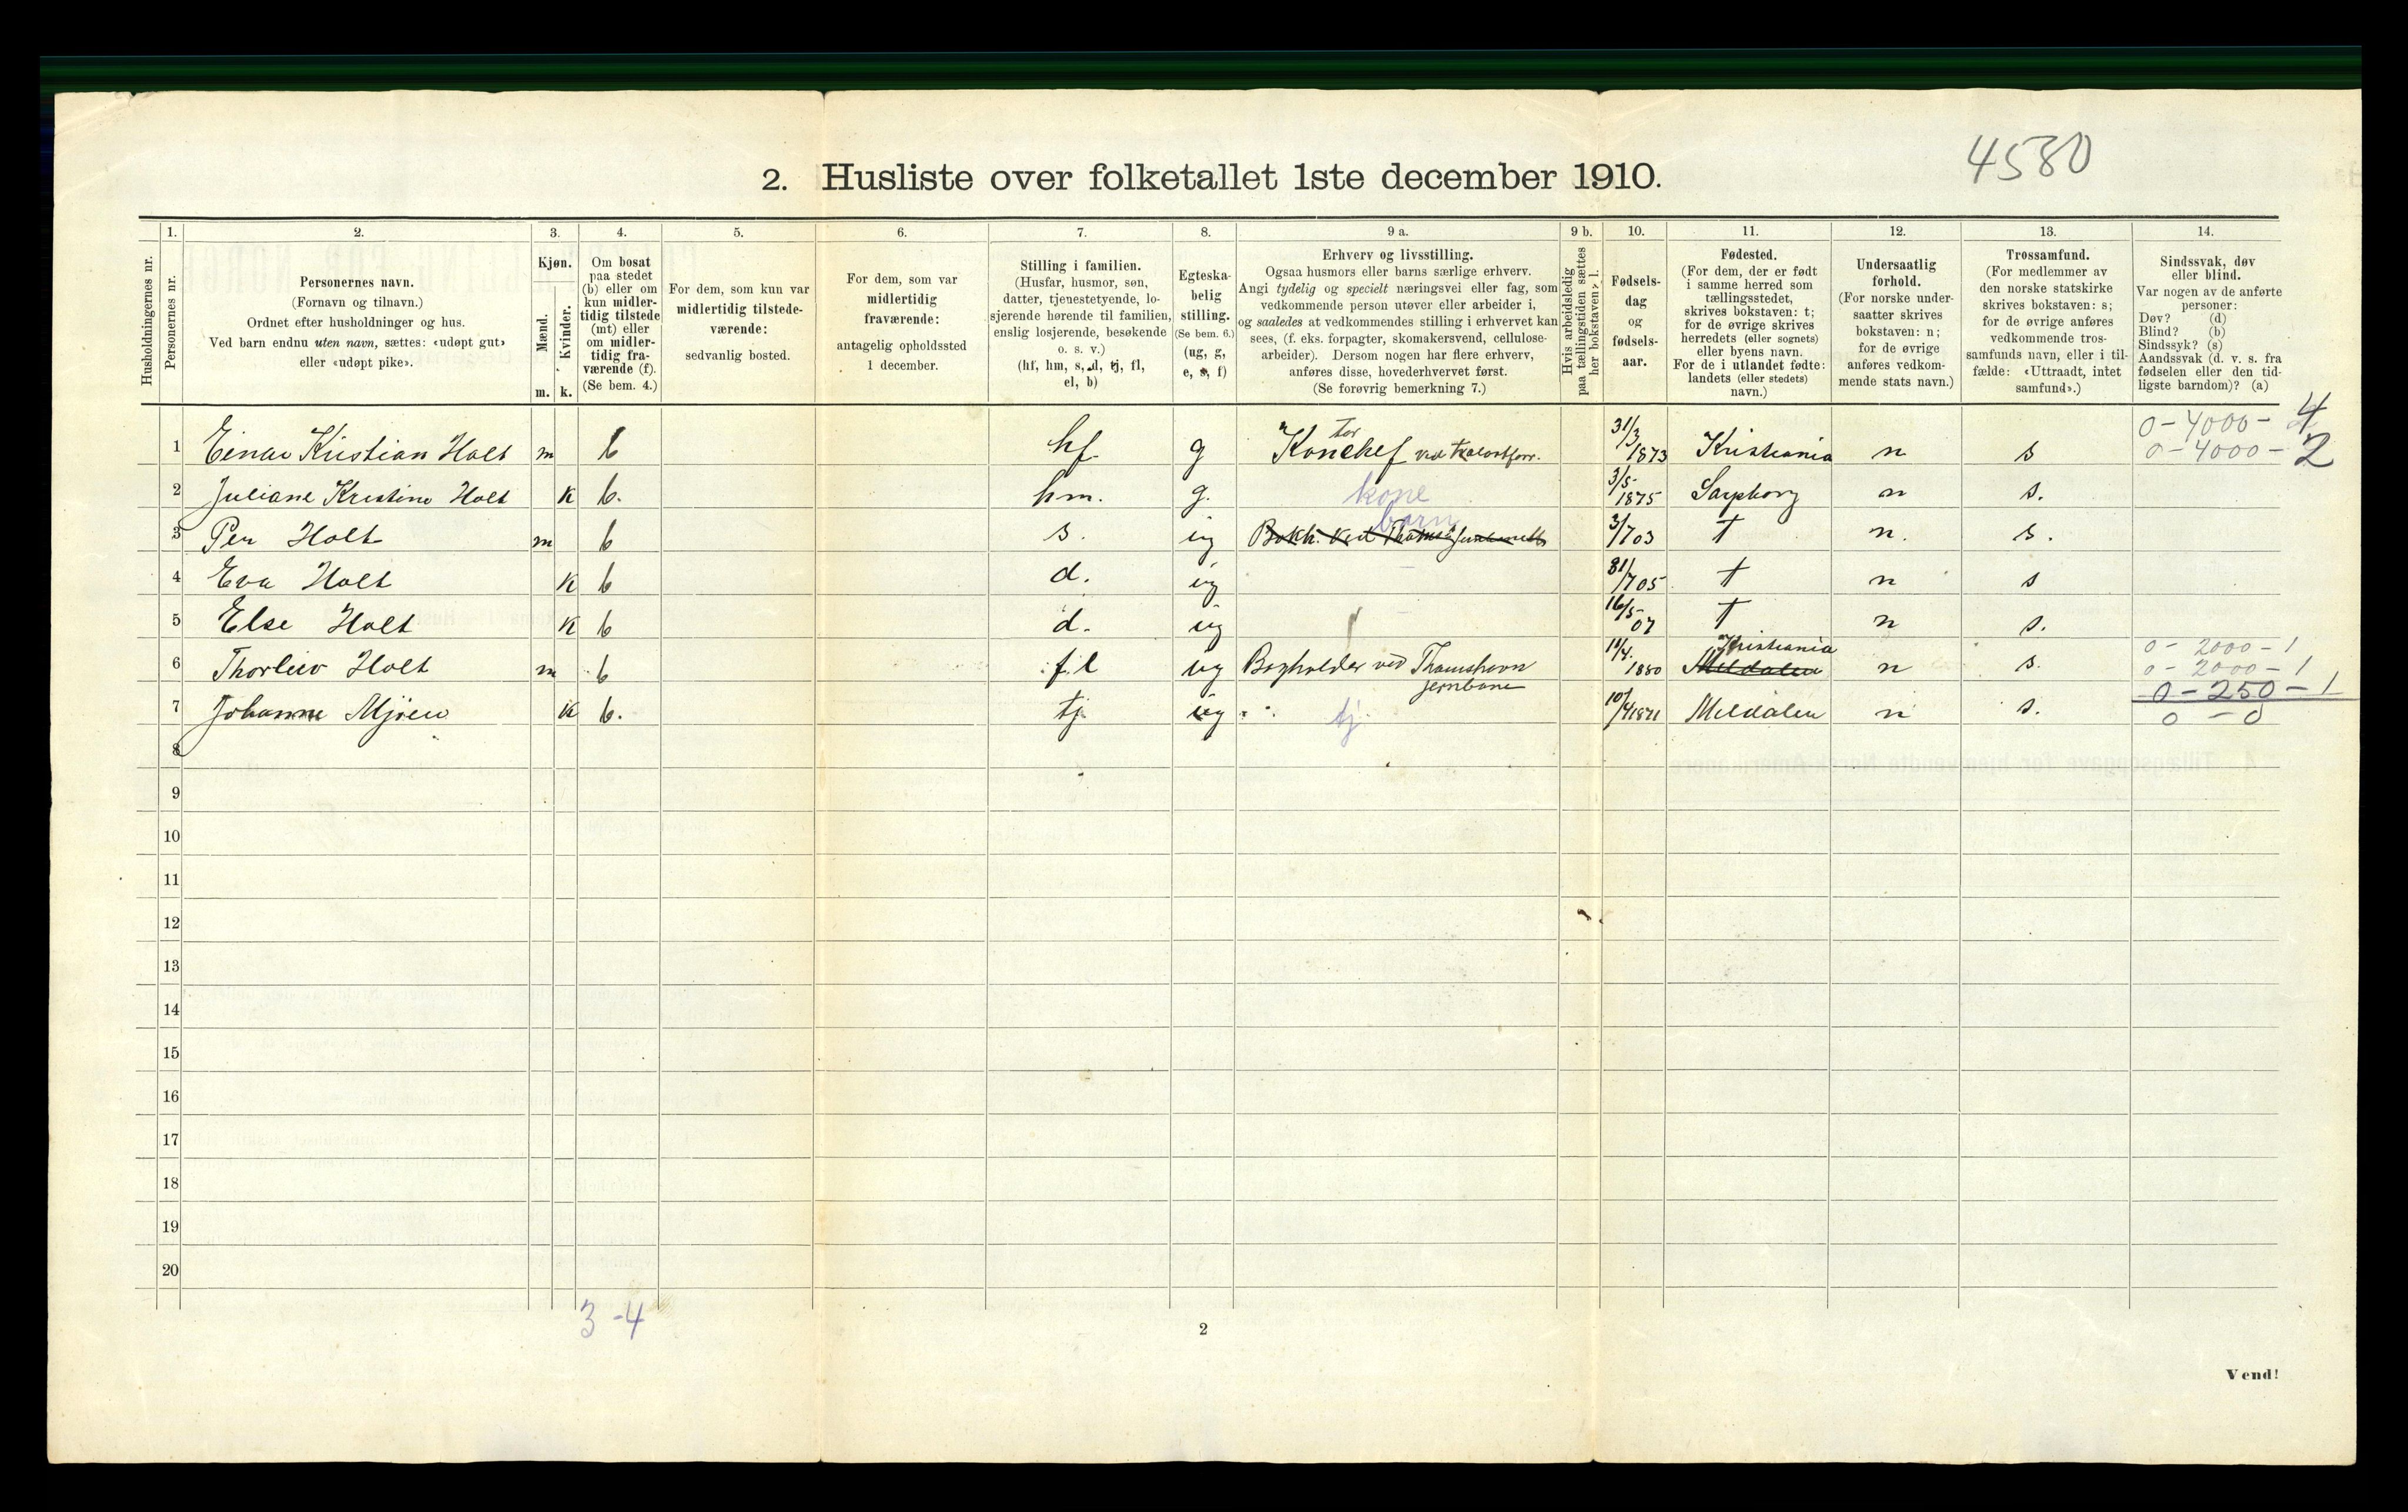 4580
2. Husliste over folketallet 1ste december 1910.
Husholdningernes nr.
1.
Personernes nr.
2.
Personernes navn.
(Fornavn og tilnavn.)
Ordnet efter husholdninger og hus.
Ved barn endnu uten navn, sættes: «udøpt gut»
eller «udøpt pike».
3.
Kjøn.
Mænd.
Kvinder.
m. k.
4.
Om bosat
paa stedet
(b) eller om
kun midler-
tidig tilstede
(mt) eller
om midler-
tidig fra-
værende (f).
(Se bem. 4.)
5.
For dem, som kun var
midlertidig tilstede-
værende:
sedvanlig bosted.
6.
For dem, som var
midlertidig
fraværende:
antagelig opholdssted
1 december.
7.
Stilling i familien.
(Husfar, husmor, søn,
datter, tjenestetyende, lo-
sjerende hørende til familien,
enslig losjerende, besøkende
o. s. v.)
(hf, hm, s, d, tj, fl,
el, b)
8.
Egteska-
belig
stilling.
(Se bem. 6.)
(ug, g,
e, s, f)
9 a.
Erhverv og livsstilling.
Ogsaa husmors eller barns særlige erhverv.
Angi tydelig og specielt næringsvei eller fag, som
vedkommende person utøver eller arbeider i,
og saaledes at vedkommendes stilling i erhvervet kan
sees, (f. eks. forpagter, skomakersvend, cellulose-
arbeider). Dersom nogen har flere erhverv,
anføres disse, hovederhvervet først.
(Se forøvrig bemerkning 7.)
9 b.
Hvis arbeidsledig
paa tællingstiden sættes
her bokstaven: l.
10.
Fødsels-
dag
og
fødsels-
aar.
11.
Fødested.
(For dem, der er født
i samme herred som
tællingsstedet,
skrives bokstaven: t;
for de øvrige skrives
herredets (eller sognets)
eller byens navn.
For de i utlandet fødte:
landets (eller stedets)
navn.)
12.
Undersaatlig
forhold.
(For norske under-
saatter skrives
bokstaven: n;
for de øvrige
anføres vedkom-
mende stats navn.)
13.
Trossamfund.
(For medlemmer av
den norske statskirke
skrives bokstaven: s;
for de øvrige anføres
vedkommende tros-
samfunds navn, eller i til-
fælde: «Uttraadt, intet
samfund».)
14.
Sindssvak, døv
eller blind.
Var nogen av de anførte
personer:
Døv? (d)
Blind? (b)
Sindssyk? (s)
Aandssvak (d. v. s. fra
fødselen eller den tid-
ligste barndom)? (a)
0-4000- 4
1 Einar Kristian Holt m b hf g Kontorchef ved 31/3 1873 Kristiania n s 0-4000- 2
2 Juliane Kristine Holt k b. hm. g. kone 3/5 1875 Sarpborg n s.
3 Per Holt m b s. ug barn Bokh. ved 3/7 03 t n. s.
4 Eva Holt k b d. ug 31/7 05 t n s
5 Else Holt k b d. ug 16/5 07 t n s.
0 - 2000 - 1
6 Thorleiv Holt m b fl ug Bogholder ved Thamshavn jernbane 11/4. 1880 Meldalen Kristiania n s. 0 - 2000 - 1
0 - 250 - 1
7 Johanne Mjöen k b. tj ug tj. 10/4 1871 Meldalen n s. 0 - 0
8
9
10
11
12
13
14
15
16
17
18
19
20
3-4
2
Vend!